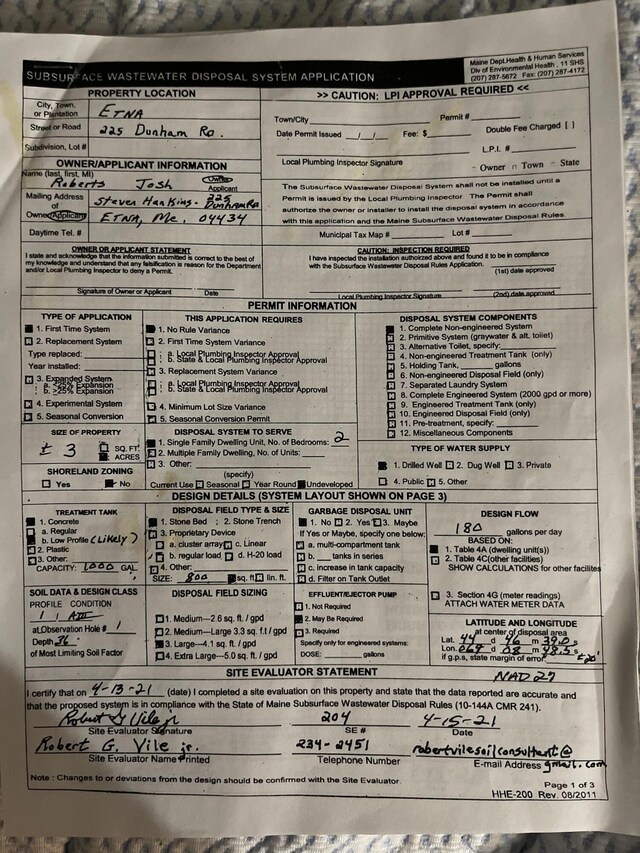 SUBSURFACE WASTEWATER DISPOSAL SYSTEM APPLICATION
Maine Dept.Health & Human Services
Div of Environmental Health , 11 SHS
(207) 287-5672 Fax: (207) 287-4172
PROPERTY LOCATION
City, Town,
or Plantation
ETNA
Street or Road
225 Dunham RD.
Subdivision, Lot #
>> CAUTION: LPI APPROVAL REQUIRED <<
Town/City
Permit #
Date Permit Issued __/__/__ Fee: $
Double Fee Charged [ ]
L.P.I. #
Local Plumbing Inspector Signature
- Owner □ Town - State
OWNER/APPLICANT INFORMATION
Name (last, first, MI)
Roberts Josh
Owner
Applicant
Mailing Address
of
Owner/Applicant
Steven Hankins- 225 Dunham RD
ETNA, Me. 04434
Daytime Tel. #
The Subsurface Wastewater Disposal System shall not be installed until a
Permit is issued by the Local Plumbing Inspector. The Permit shall
authorize the owner or installer to install the disposal system in accordance
with this application and the Maine Subsurface Wastewater Disposal Rules.
Municipal Tax Map # Lot #
OWNER OR APPLICANT STATEMENT
I state and acknowledge that the information submitted is correct to the best of
my knowledge and understand that any falsification is reason for the Department
and/or Local Plumbing Inspector to deny a Permit.
Signature of Owner or Applicant Date
CAUTION: INSPECTION REQUIRED
I have inspected the installation authorized above and found it to be in compliance
with the Subsurface Wastewater Disposal Rules Application.
(1st) date approved
Local Plumbing Inspector Signature
(2nd) date approved
PERMIT INFORMATION
TYPE OF APPLICATION
1. First Time System
2. Replacement System
Type replaced:
Year installed:
3. Expanded System
a. <25% Expansion
b. >25% Expansion
4. Experimental System
5. Seasonal Conversion
THIS APPLICATION REQUIRES
1. No Rule Variance
2. First Time System Variance
a. Local Plumbing Inspector Approval
b. State & Local Plumbing Inspector Approval
3. Replacement System Variance
a. Local Plumbing Inspector Approval
b. State & Local Plumbing Inspector Approval
4. Minimum Lot Size Variance
5. Seasonal Conversion Permit
DISPOSAL SYSTEM COMPONENTS
1. Complete Non-engineered System
2. Primitive System (graywater & alt. toilet)
3. Alternative Toilet, specify:
4. Non-engineered Treatment Tank (only)
5. Holding Tank, ______ gallons
6. Non-engineered Disposal Field (only)
7. Separated Laundry System
8. Complete Engineered System (2000 gpd or more)
9. Engineered Treatment Tank (only)
10. Engineered Disposal Field (only)
11. Pre-treatment, specify:
12. Miscellaneous Components
SIZE OF PROPERTY
± 3
SQ. FT.
ACRES
SHORELAND ZONING
Yes No
DISPOSAL SYSTEM TO SERVE
1. Single Family Dwelling Unit, No. of Bedrooms: 2
2. Multiple Family Dwelling, No. of Units:
3. Other:
(specify)
Current Use Seasonal Year Round Undeveloped
TYPE OF WATER SUPPLY
1. Drilled Well 2. Dug Well 3. Private
4. Public 5. Other
DESIGN DETAILS (SYSTEM LAYOUT SHOWN ON PAGE 3)
TREATMENT TANK
1. Concrete
a. Regular
b. Low Profile (Likely)
2. Plastic
3. Other:
CAPACITY: 1000 GAL.
DISPOSAL FIELD TYPE & SIZE
1. Stone Bed 2. Stone Trench
3. Proprietary Device
a. cluster array c. Linear
b. regular load d. H-20 load
4. Other:
SIZE: 800 sq. ft. lin. ft.
GARBAGE DISPOSAL UNIT
1. No 2. Yes 3. Maybe
If Yes or Maybe, specify one below:
a. multi-compartment tank
b. ___ tanks in series
c. increase in tank capacity
d. Filter on Tank Outlet
DESIGN FLOW
180 gallons per day
BASED ON:
1. Table 4A (dwelling unit(s))
2. Table 4C(other facilities)
SHOW CALCULATIONS for other facilities
3. Section 4G (meter readings)
ATTACH WATER METER DATA
SOIL DATA & DESIGN CLASS
PROFILE CONDITION
1 / AIII
at Observation Hole # 1
Depth 36"
of Most Limiting Soil Factor
DISPOSAL FIELD SIZING
1. Medium---2.6 sq. ft. / gpd
2. Medium--Large 3.3 sq. f.t / gpd
3. Large---4.1 sq. ft. / gpd
4. Extra Large---5.0 sq. ft. / gpd
EFFLUENT/EJECTOR PUMP
1. Not Required
2. May Be Required
3. Required
Specify only for engineered systems:
DOSE: ______ gallons
LATITUDE AND LONGITUDE
at center of disposal area
Lat. 44 d 46 m 39.0 s
Lon. 069 d 08 m 48.5 s
if g.p.s, state margin of error: ± 20'
SITE EVALUATOR STATEMENT
NAD 27
I certify that on 4-13-21 (date) I completed a site evaluation on this property and state that the data reported are accurate and
that the proposed system is in compliance with the State of Maine Subsurface Wastewater Disposal Rules (10-144A CMR 241).
Robert G Vile jr 204 4-15-21
Site Evaluator Signature SE # Date
Robert G. Vile jr. 234-2451 robertvilesoilconsultant@
gmail.com
Site Evaluator Name Printed Telephone Number E-mail Address
Note : Changes to or deviations from the design should be confirmed with the Site Evaluator.
Page 1 of 3
HHE-200 Rev. 08/2011